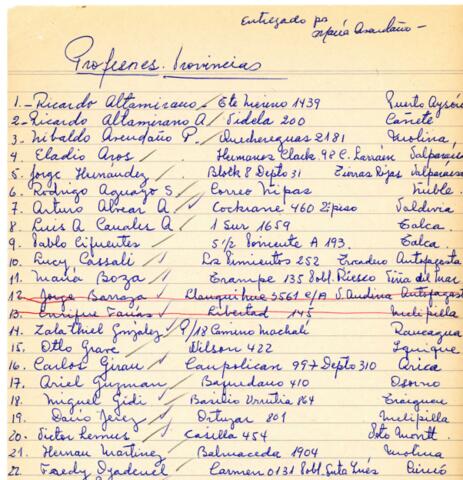 Entregado por
María Avendaño -
Profesores Provincias
1.- Ricardo Altamirano - Cte Merino 1439 Puerto Aysén
2.- Ricardo Altamirano A Videla 200 Cañete
3. Nibaldo Avendaño P. Quechereguas 2181 Molina
4 Eladio Aros Hermanos Clark 98 C. Larraín Valparaíso
5 Jorge Hernandez Block 8 Depto 31 Valparaíso
6. Rodrigo S. Correo Nipas Ñuble
7 Arturo Alvear A Cochrane 460 2 piso Valdivia
8 Luis A A 1 Sur 1659 Talca
9 Pablo Cifuentes 5 1/2 Poniente A 193. Talca
10. Lucy Cassali Los Pimientos 252 Antofagasta
11 María Boza 135 Pobl. Riesco Viña del Mar
12 Jorge Barraza Llanquihue 5561 c/A V. Andina Antofagasta
13. Enrique Farías Libertad 145 Melipilla
14 Zalathiel Gonzalez P/18 Camino Machalí Rancagua
15. Otto Grave Wilson 422 Iquique
16 Carlos Girau Caupolican 997 Depto 310 Arica
17. Ariel Guzman Baquedano 410 Osorno
18. Miguel Gidi Basilio Urrutia 864 Traiguen
19. Dario Jerez Ortuzar 801 Melipilla
20. Victor Lemus Casilla 454 Pto Montt.
21. Hernan Martínez Balmaceda 1904 Molina
22. Fredy Carmen 0131 Pobl. Sta Inés